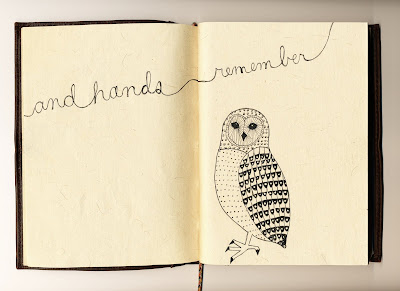 and hands remember